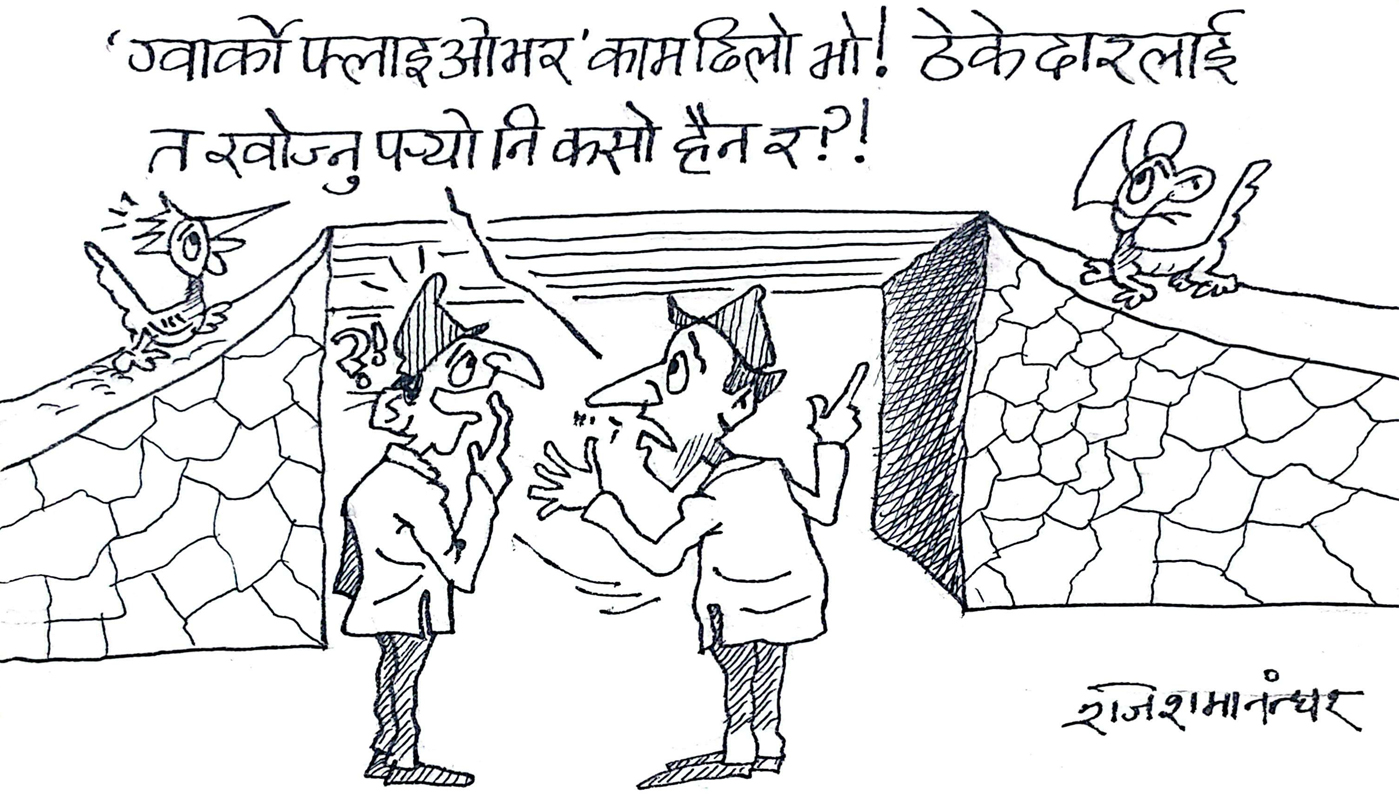 'ग्वार्को फ्लाइओभर' काम ढिलो भो! ठेकेदारलाई
त खोज्नु पऱ्यो नि कसो हैन र?!
?!
राजेश मानन्धर